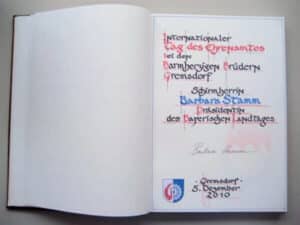 Internationaler
Tag des Ehrenamtes
bei den
Barmherzigen Brüdern
Gremsdorf
Schirmherrin
Barbara Stamm
Präsidentin
des Bayerischen Landtages
Barbara Stamm
Gremsdorf
5. Dezember
2010